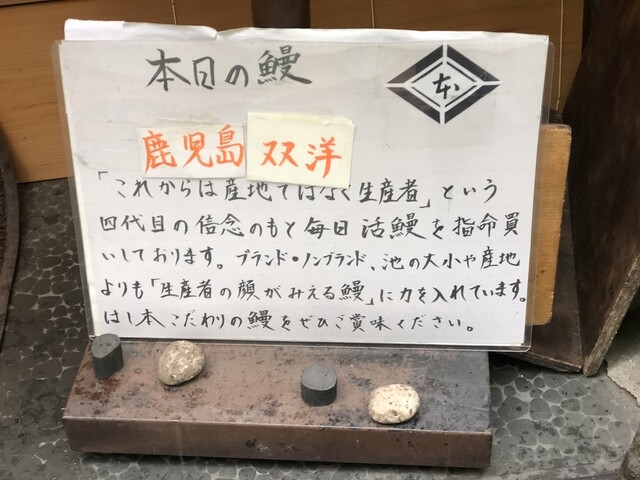 本日の鰻
本
鹿児島 双洋
「これからは産地ではなく生産者」という
四代目の信念のもと毎日活鰻を指命買
いしております。ブランド・ノンブランド、池の大小や産地
よりも「生産者の顔がみえる鰻」に力を入れています。
はし本こだわりの鰻をぜひご賞味ください。